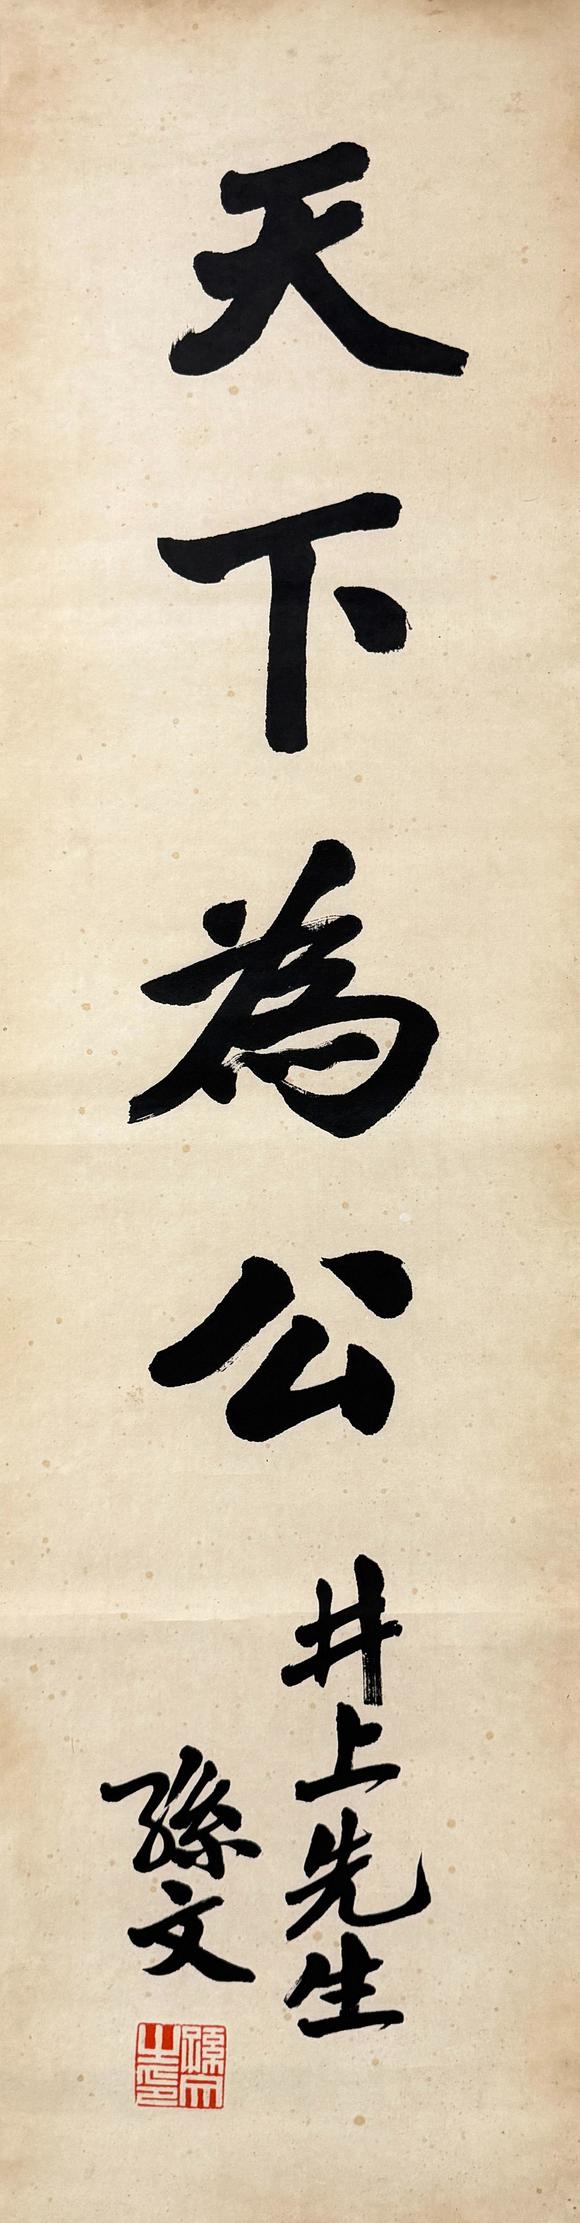 天下為公
井上先生
孫文
孫文之印